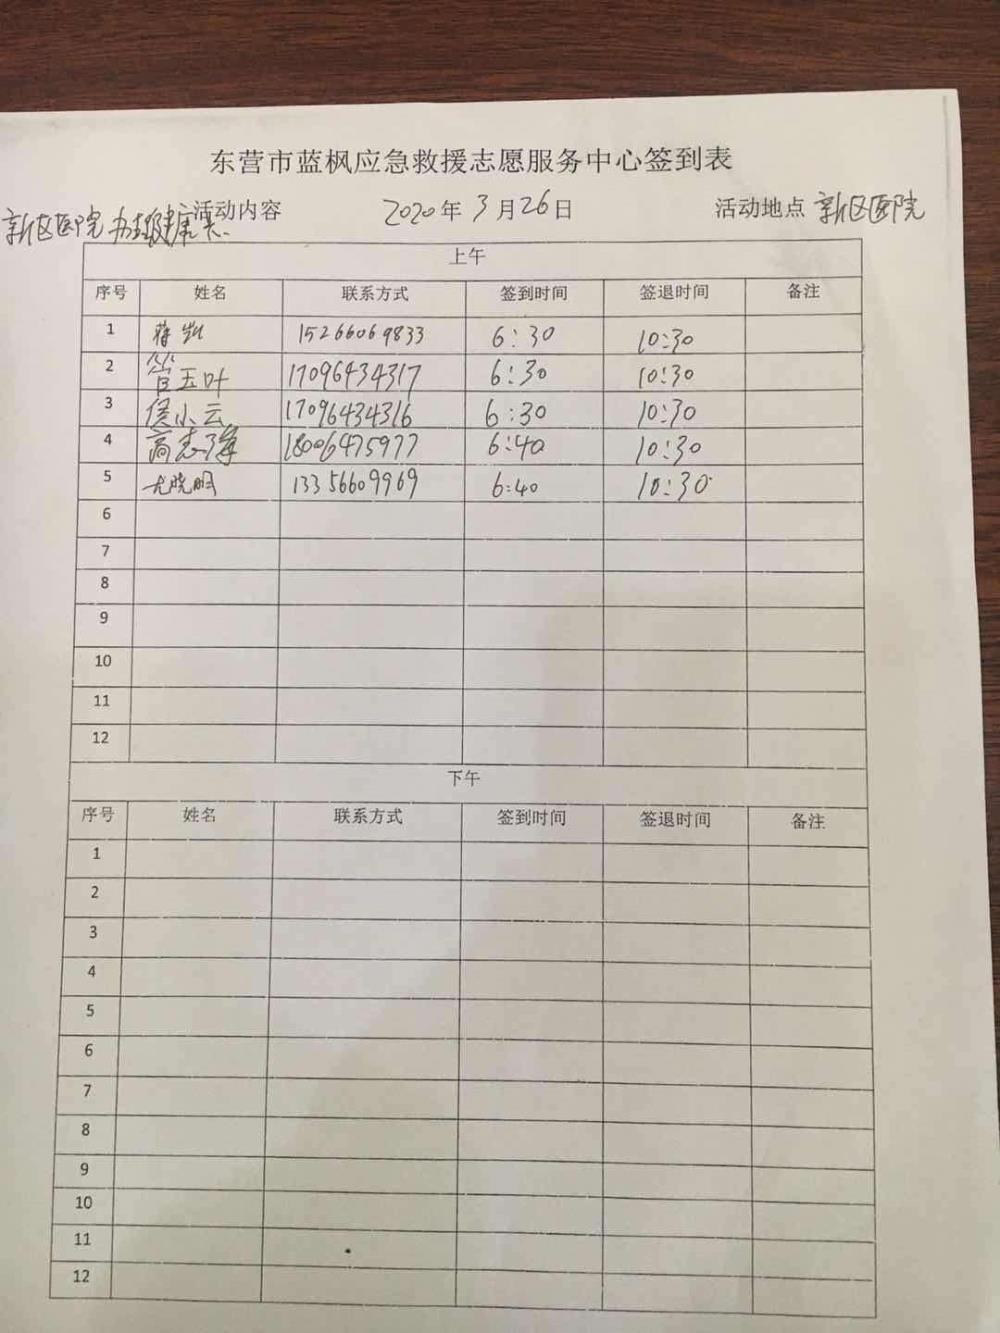 东营市蓝枫应急救援志愿服务中心签到表
活动内容 2020年3月26日 活动地点 新区医院
新区医院办理健康表
上午
序号 姓名 联系方式 签到时间 签退时间 备注
1 蒋凯 15266069833 6:30 10:30
2 管玉叶 17096434317 6:30 10:30
3 侯小云 17096434316 6:30 10:30
4 高志海 18006475977 6:40 10:30
5 尤晓明 13356609969 6:40 10:30
6
7
8
9
10
11
12
下午
序号 姓名 联系方式 签到时间 签退时间 备注
1
2
3
4
5
6
7
8
9
10
11
12